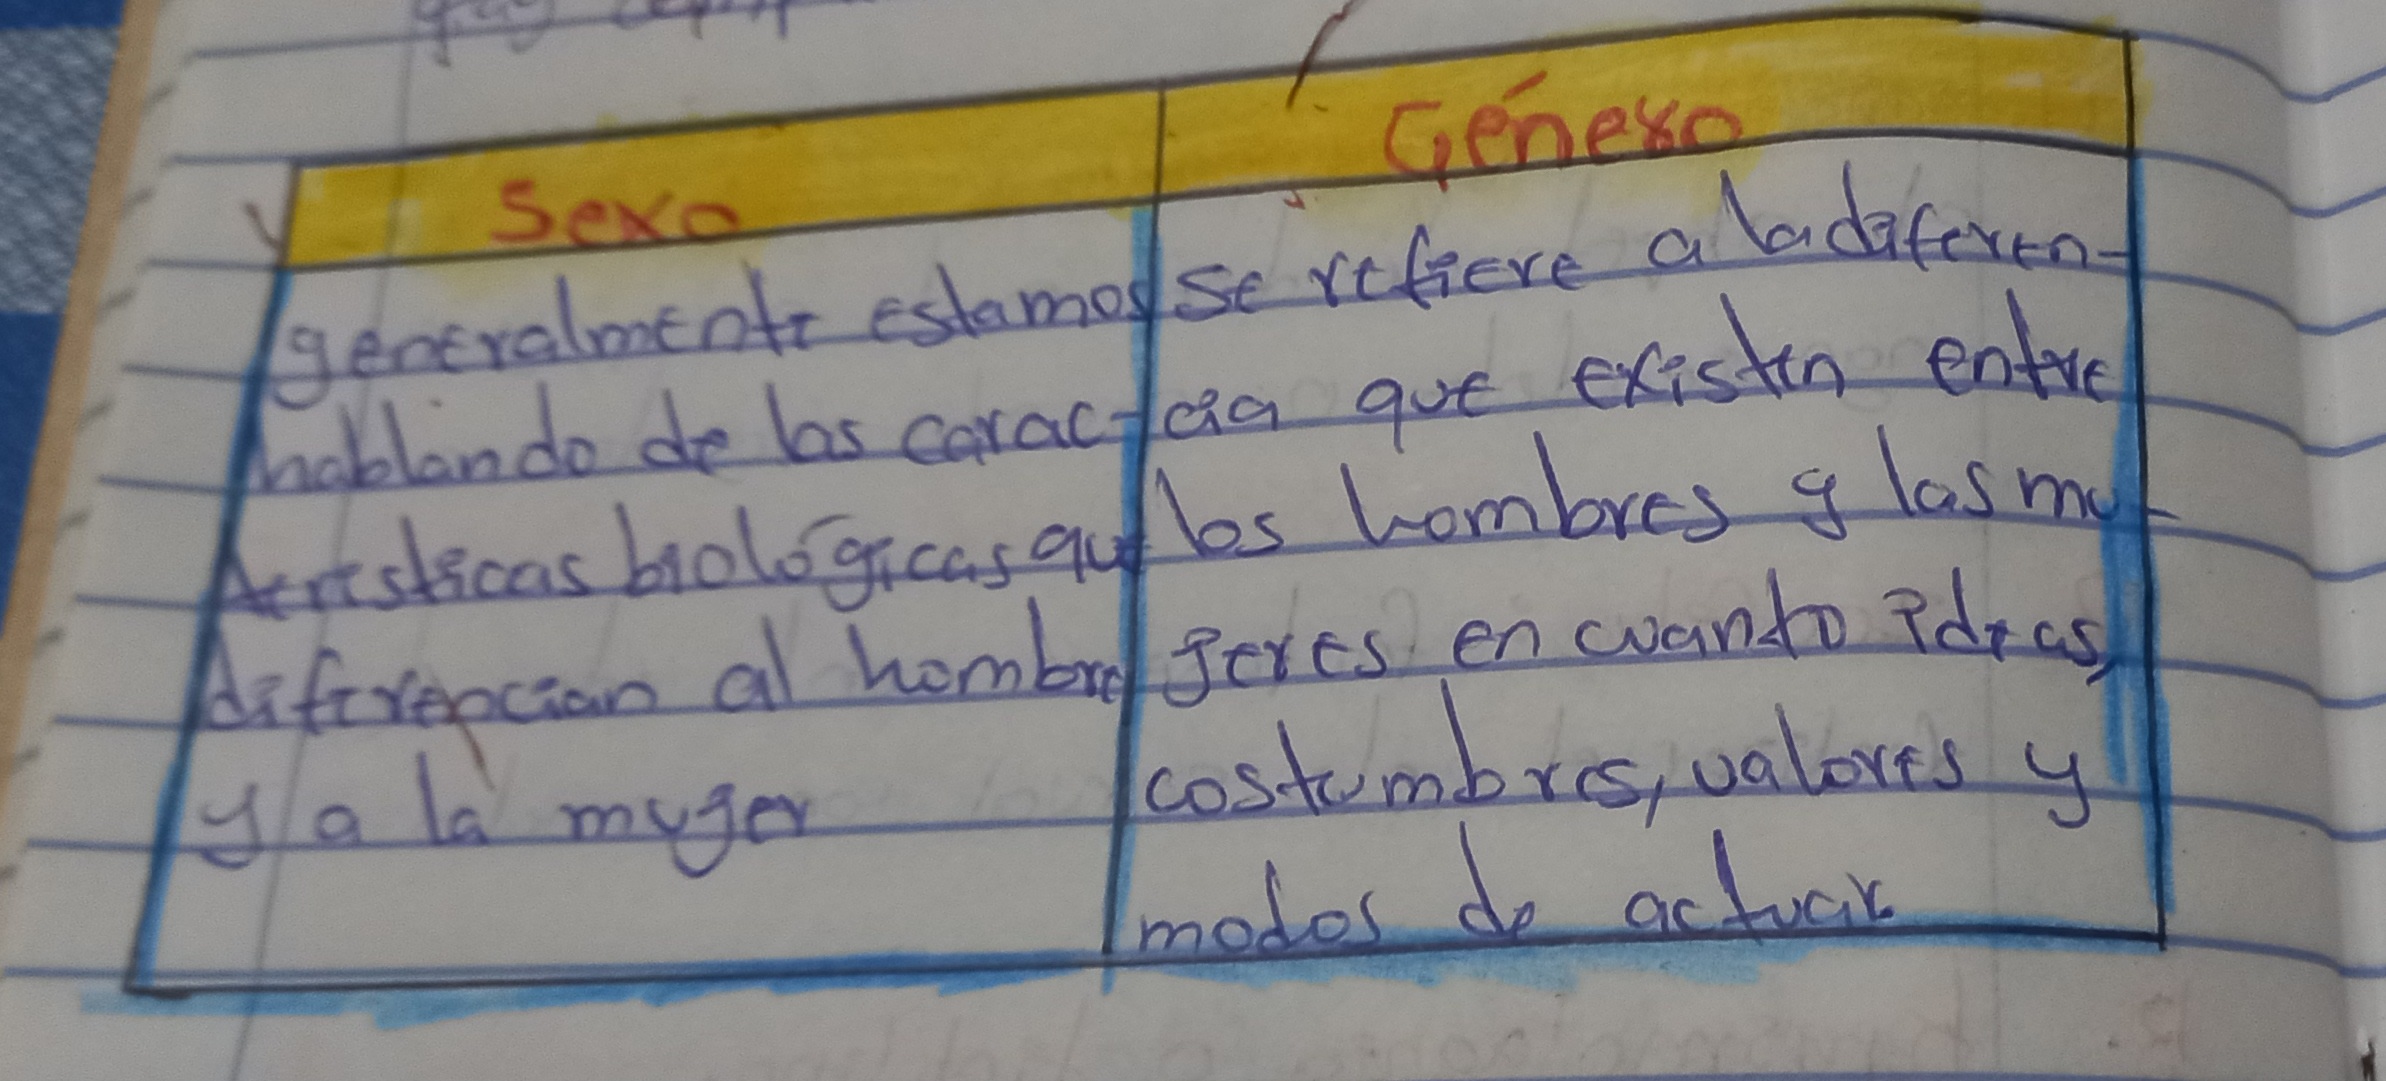 Sexo
generalmente estamos
hablando de las carac-
terísticas biológicas que
diferencian al hombre
y a la mujer
Género
se refiere a la diferen-
cia que existen entre
los hombres y las mu-
jeres en cuanto ideas,
costumbres, valores y
modos de actuar